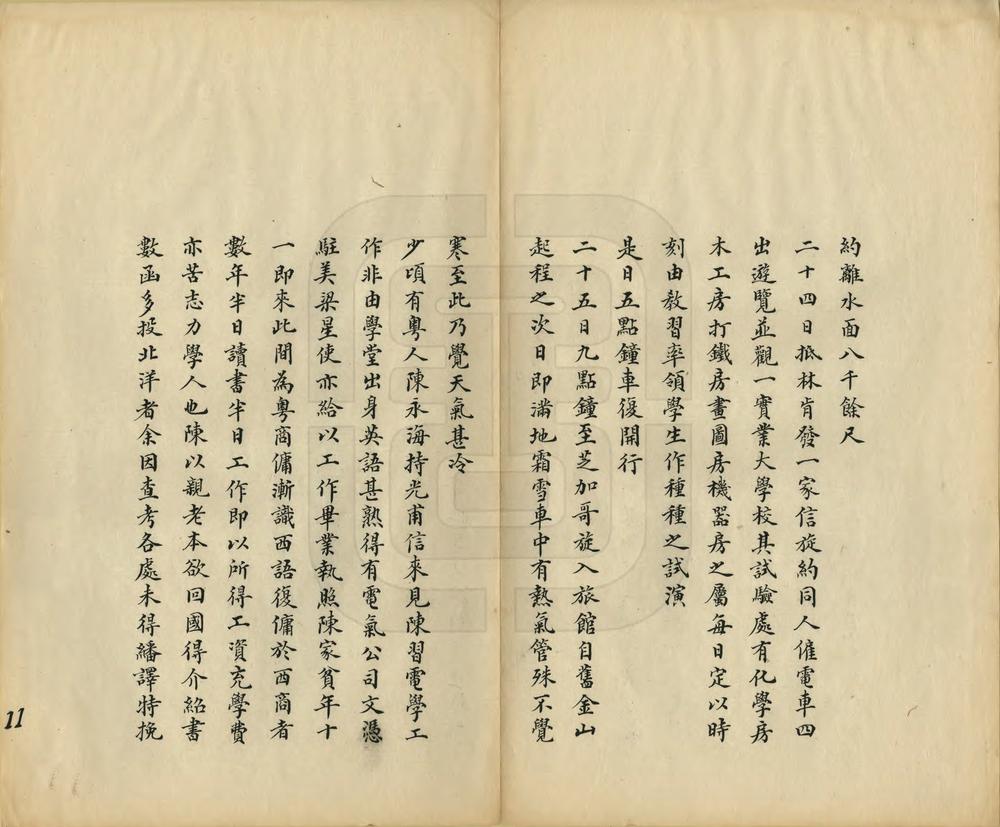 約離水面八千餘尺
二十四日抵林肯發一家信旋約同人僱電車四
出遊覽並觀一實業大學校其試驗處有化學房
木工房打鐵房畫圖房機器房之屬每日定以時
刻由教習率領學生作種種之試演
是日五點鐘車復開行
二十五日九點鐘至芝加哥旋入旅館自舊金山
起程之次日即滿地霜雪車中有熱氣管殊不覺
寒至此乃覺天氣甚冷
少頃有粵人陳永海持光甫信來見陳習電學工
作非由學堂出身英語甚熟得有電氣公司文憑
駐美梁星使亦給以工作畢業執照陳家貧年十
一即來此間為粵商傭漸識西語復傭於西商者
數年半日讀書半日工作即以所得工資充學費
亦苦志力學人也陳以親老本欲回國得介紹書
數函多投北洋者余因查考各處未得繙譯特挽
11